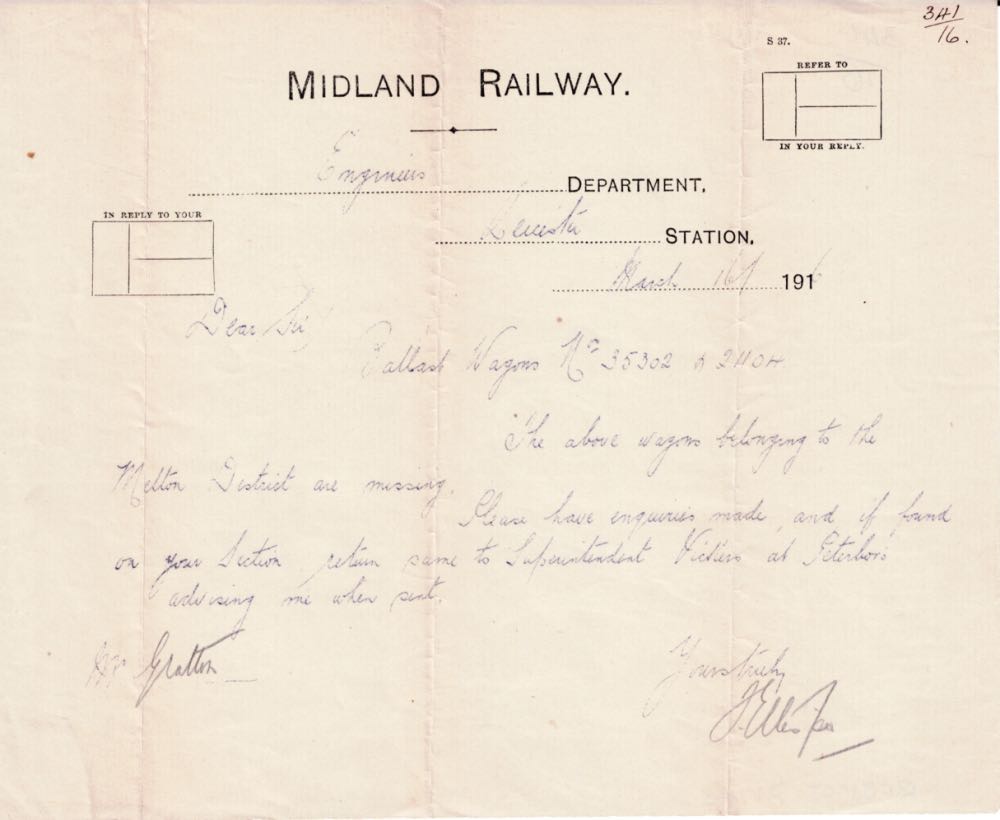 341
16.
S 37.
REFER TO
MIDLAND RAILWAY.
IN YOUR REPLY.
Engineers DEPARTMENT,
IN REPLY TO YOUR
Leicester STATION,
March 16th 1916
Dear Sir
Ballast Wagons No 35302 &
The above wagons belonging to the
Melton District are missing.
Please have enquiries made, and if found
on your Section return same to Superintendent Vickers at Peterboro'
advising me when sent.
Yours truly,
Mr Gratton